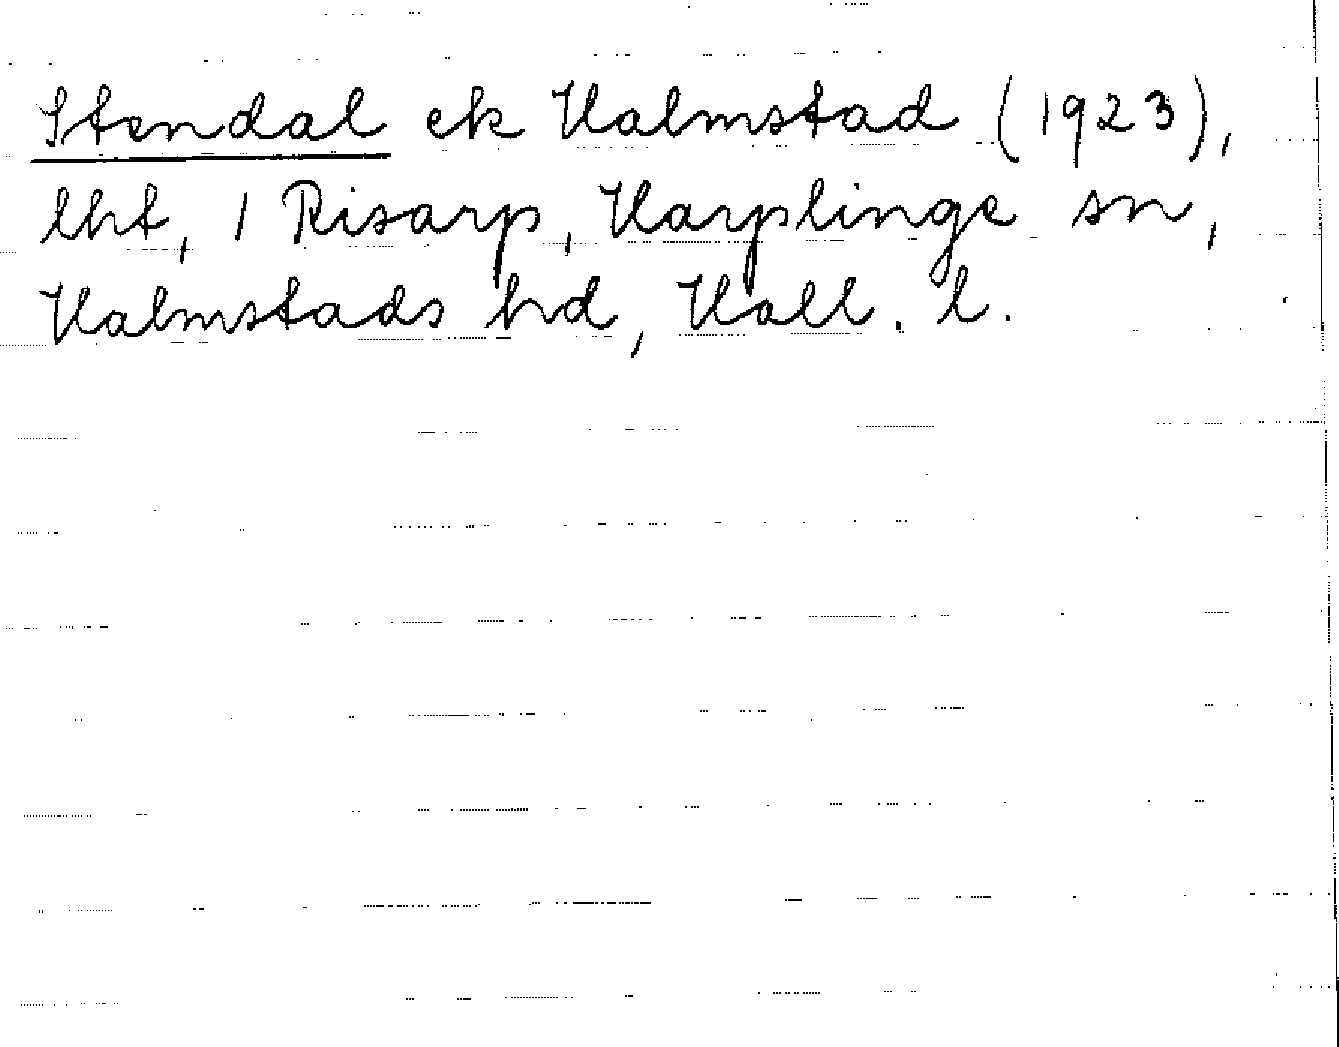 Stendal ek Halmstad (1923),
lht, 1 Risarp, Harplinge sn,
Halmstads hd, Hall. l.